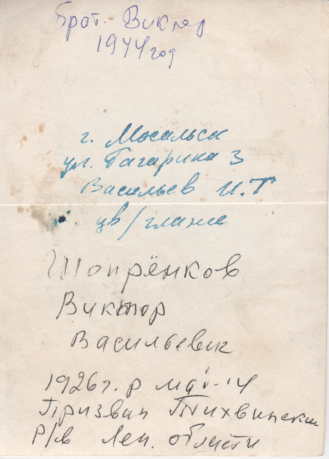 Брат. Виктор
1944 год
г. Мосальск
ул. Гагарина 3
Васильев И.Т
цв/глянс
Шопрёнков
Виктор
Васильевич
1926г. р май-14
Призван Тихвинским
Р/в Лен. области